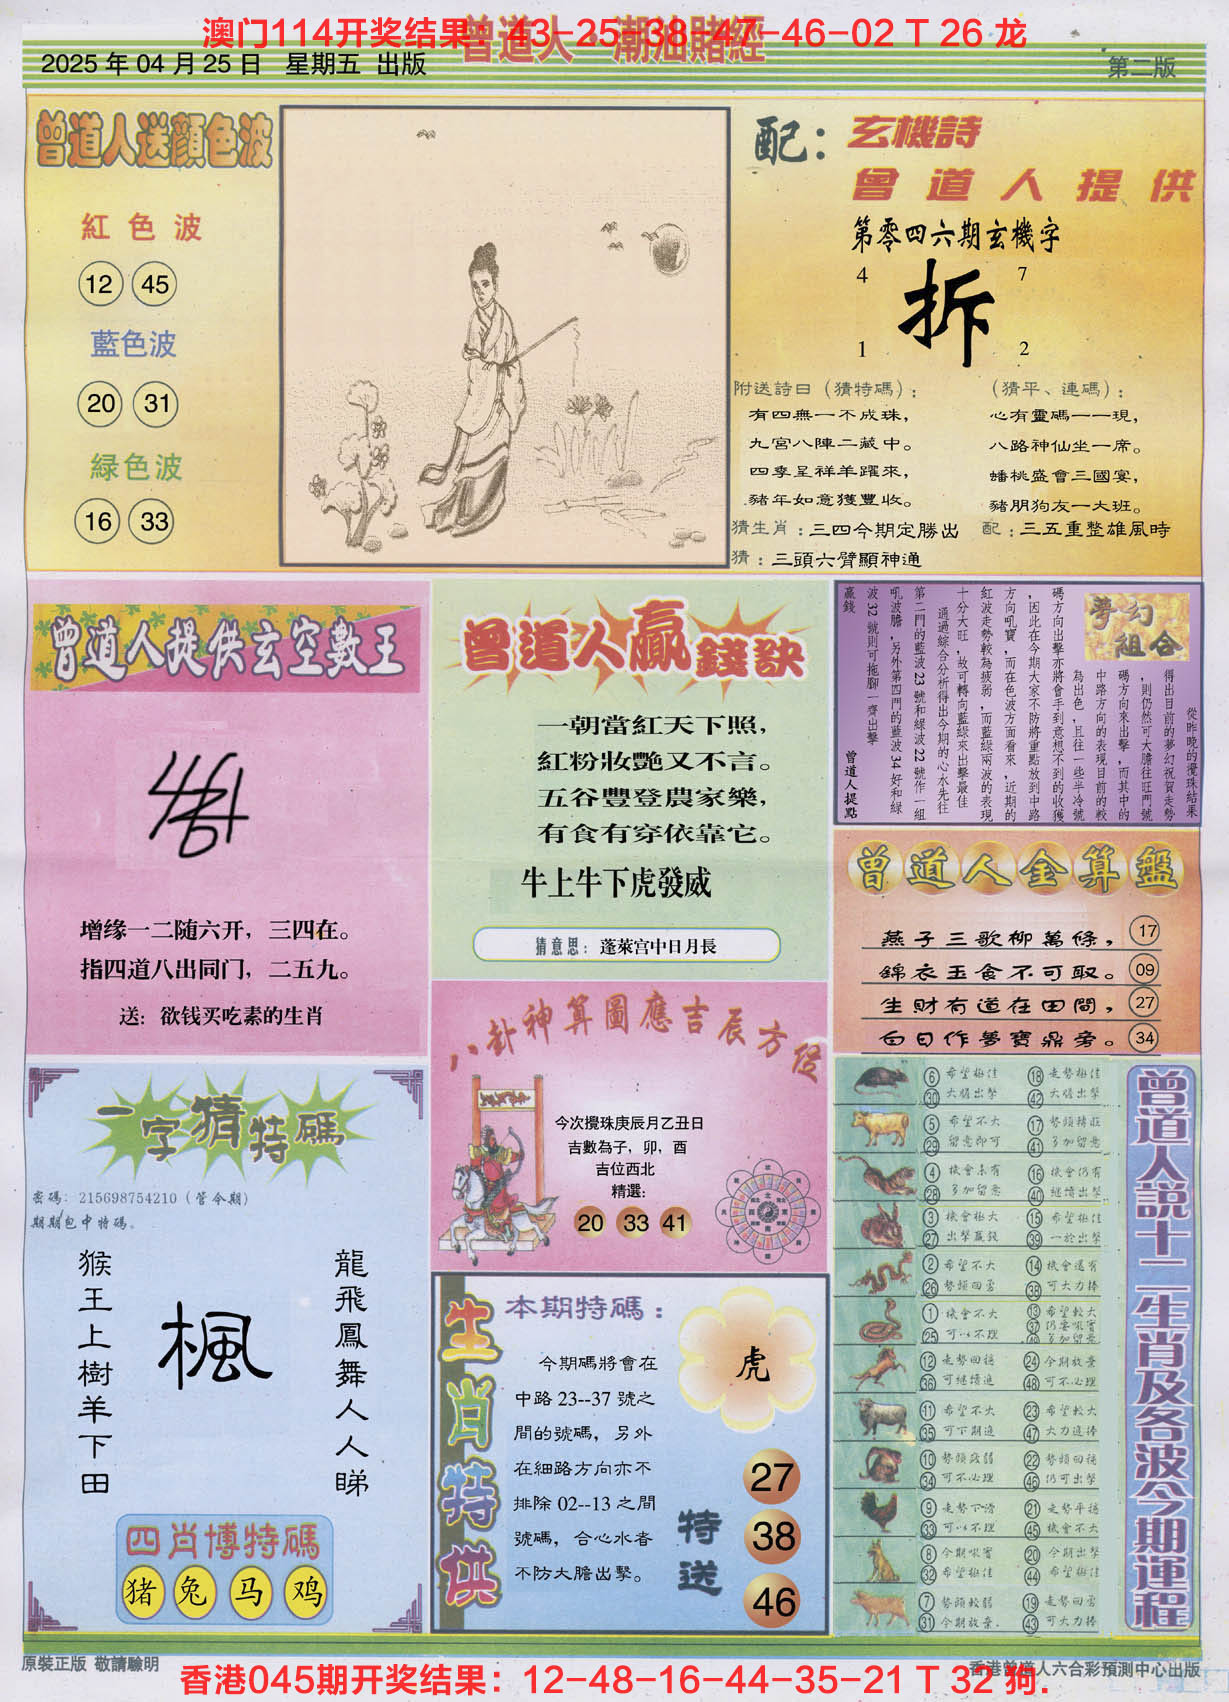 澳门114开奖结果:43-25-38-47-46-02 T 26 龙
曾道人·潮汕賭經
2025 年 04 月 25 日 星期五 出版
第二版
曾道人送顏色波
紅色波
12 45
藍色波
20 31
緑色波
16 33
配:玄機詩
曾道人提供
第零四六期玄機字
4 7
拆
1 2
附送詩曰(猜特碼):
有四無一不成珠,
九宮八陣二藏中。
四季呈祥羊躍來,
豬年如意獲豐收。
(猜平、連碼):
心有靈碼一一現,
八路神仙坐一席。
蟠桃盛會三國宴,
豬朋狗友一大班。
猜生肖:三四今期定勝出
配:三五重整雄風時
猜:三頭六臂顯神通
曾道人提供玄空數王
增缘一二随六开,三四在。
指四道八出同门,二五九。
送:欲钱买吃素的生肖
曾道人贏錢訣
一朝當紅天下照,
紅粉妝艷又不言。
五谷豐登農家樂,
有食有穿依靠它。
牛上牛下虎發威
猜意思:蓬萊宮中日月長
夢幻組合
從昨晚的攪珠結果
得出目前的夢幻祝賀走勢
,則仍然可大膽往旺門號
碼方向來出擊,而其中的
中路方向的表現目前的較
為出色,且往一些半冷號
碼方向出擊亦將會手到意想不到的收獲
,因此在今期大家不防將重點放到中路
方向吼寶,而在色波方面看來,近期的
紅波走勢較為疲弱,而藍綠兩波的表現
十分大旺,故可轉向藍綠來出擊最佳
通過綜合分析得出今期的心水先往
第二門的藍波23號和綠波22號作一組
吼波膽,另外第四門的藍波34好和綠
波32號則可拖腳一齊出擊
贏錢
曾道人提點
曾道人金算盤
燕子三歌柳萬條, 17
錦衣玉食不可取。 09
生財有道在田間, 27
白日作夢寶鼎旁。 34
八卦神算圖應吉辰方位
今次攪珠庚辰月乙丑日
吉數為子,卯,酉
吉位西北
精選:
20 33 41
一字猜特碼
密碼:215698754210(管令期)
期期包中特碼。
猴王上樹羊下田
楓
龍飛鳳舞人人睇
四肖博特碼
猪 兔 马 鸡
生肖特供
本期特碼:
今期碼將會在
中路23--37號之
間的號碼,另外
在細路方向亦不
排除02--13之間
號碼,合心水者
不防大膽出擊。
虎
特送
27
38
46
曾道人説十二生肖及各波今期運程
6 30 希望極佳 大膽出擊 18 42 走勢極佳 大膽出擊
5 29 希望不大 留意即可 17 41 勢頭轉旺 多加留意
4 28 機會未有 多加留意 16 40 機會仍有 繼續出擊
3 27 機會極大 出擊贏錢 15 39 希望極佳 一於出擊
2 26 希望不大 勢頭回勇 14 38 機會還有 可大力捧
1 25 機會不大 可以不理 13 37 49 希望較大 仍要吼實 多加留意
12 36 走勢回穩 可繼續追 24 48 今期放棄 可不必理
11 35 希望不大 可下期追 23 47 希望較大 大力追捧
10 34 勢頭疲弱 可不必理 22 46 勢頭回穩 仍可出擊
9 33 走勢下滑 可以不理 21 45 走勢平穩 機會不大
8 32 今期吼實 希望極佳 20 44 今期出擊 希望極佳
7 31 勢頭較弱 今期放棄. 19 43 走勢回勇 可大力捧
原裝正版 敬請驗明
香港曾道人六合彩預測中心出版
香港045期开奖结果:12-48-16-44-35-21 T 32 狗.